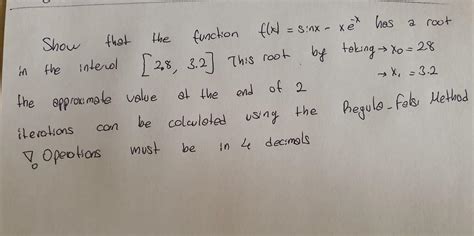 Show that the function f(x) = sinx - xe^-x has a root
in the interval [2.8, 3.2] This root by taking → x0 = 2.8
→ x1 = 3.2
the approximate value at the end of 2
iterations can be calculated using the Regula-Falsi Method
! Operations must be in 4 decimals